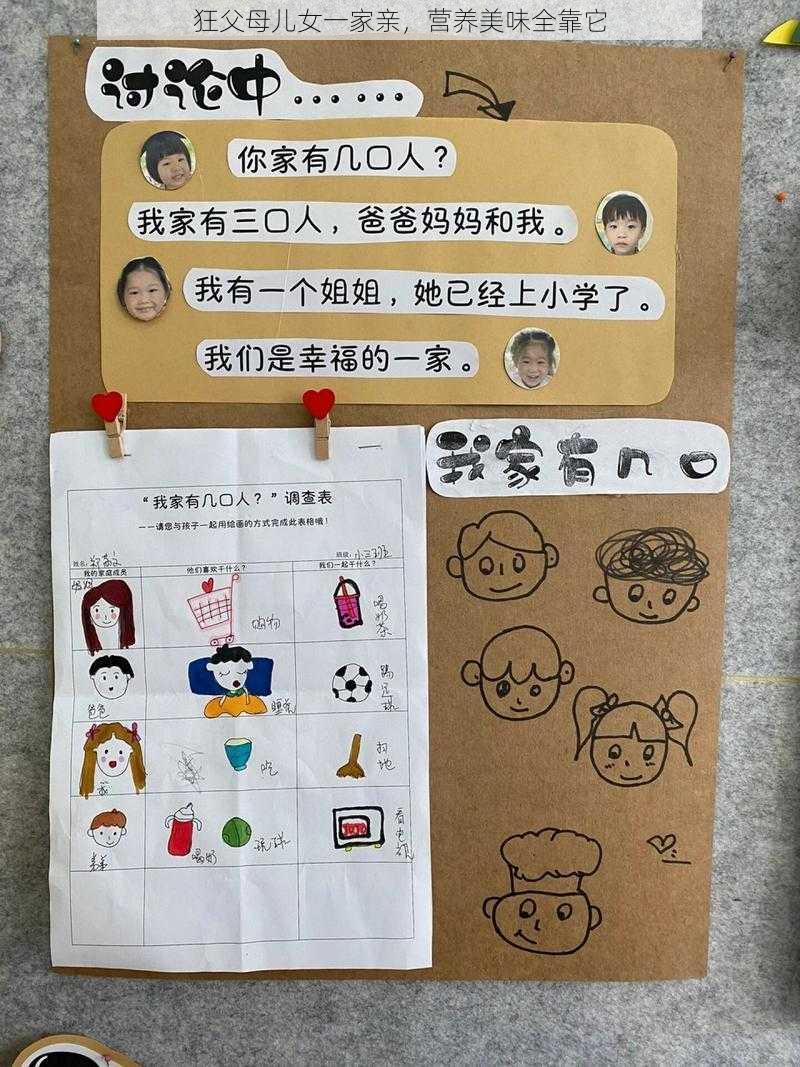 狂父母儿女一家亲，营养美味全靠它
讨论中……
你家有几口人？
我家有三口人，爸爸妈妈和我。
我有一个姐姐，她已经上小学了。
我们是幸福的一家。
我家有几口
“我家有几口人？”调查表
——请您与孩子一起用绘画的方式完成此表格哦！
姓名： 班级：小三班
我的家庭成员 他们喜欢干什么？ 我们一起干什么？
妈妈 购物 喝奶茶
爸爸 睡觉 踢足球
我 吃 扫地
弟弟 喝奶 玩球 看电视